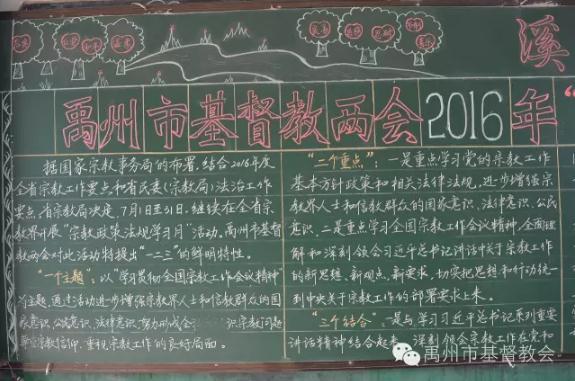 溪
禹州市基督教两会2016年
据国家宗教事务局的布署,结合2016年度
全省宗教工作要点和省民委(宗教局)法治工作
要点,省宗教局决定,7月1日至31日,继续在全省宗
教界开展“宗教政策法规学习月”活动,禹州市基督
教两会对此活动特提出“一二三”的鲜明特性。
“一个主题”:以“学习贯彻全国宗教工作会议精神”
为主题,通过活动进步增强宗教界人士和信教群众的国
家意识、公民意识、法律意识,努力形成全 识宗教问题
宗教信仰、重视宗教工作的良好局面。
“二个重点”:一是重点学习党的宗教工作
基本方针政策和相关法律法规,进步增强宗
教界人士和信教群众的国家意识、法律意识、公民
意识。二是重点学习全国宗教工作会议精神,全面理
解和深刻领会习近平总书记讲话中关于宗教工作
的新思想、新观点、新要求,切实把思想和行动统一
到中央关于宗教工作的部署要求上来。
“三个结合”:一是与学习习近平总书记系列重要
讲话精神结合起来,深刻领会宗教工作在党和
禹州市基督教会